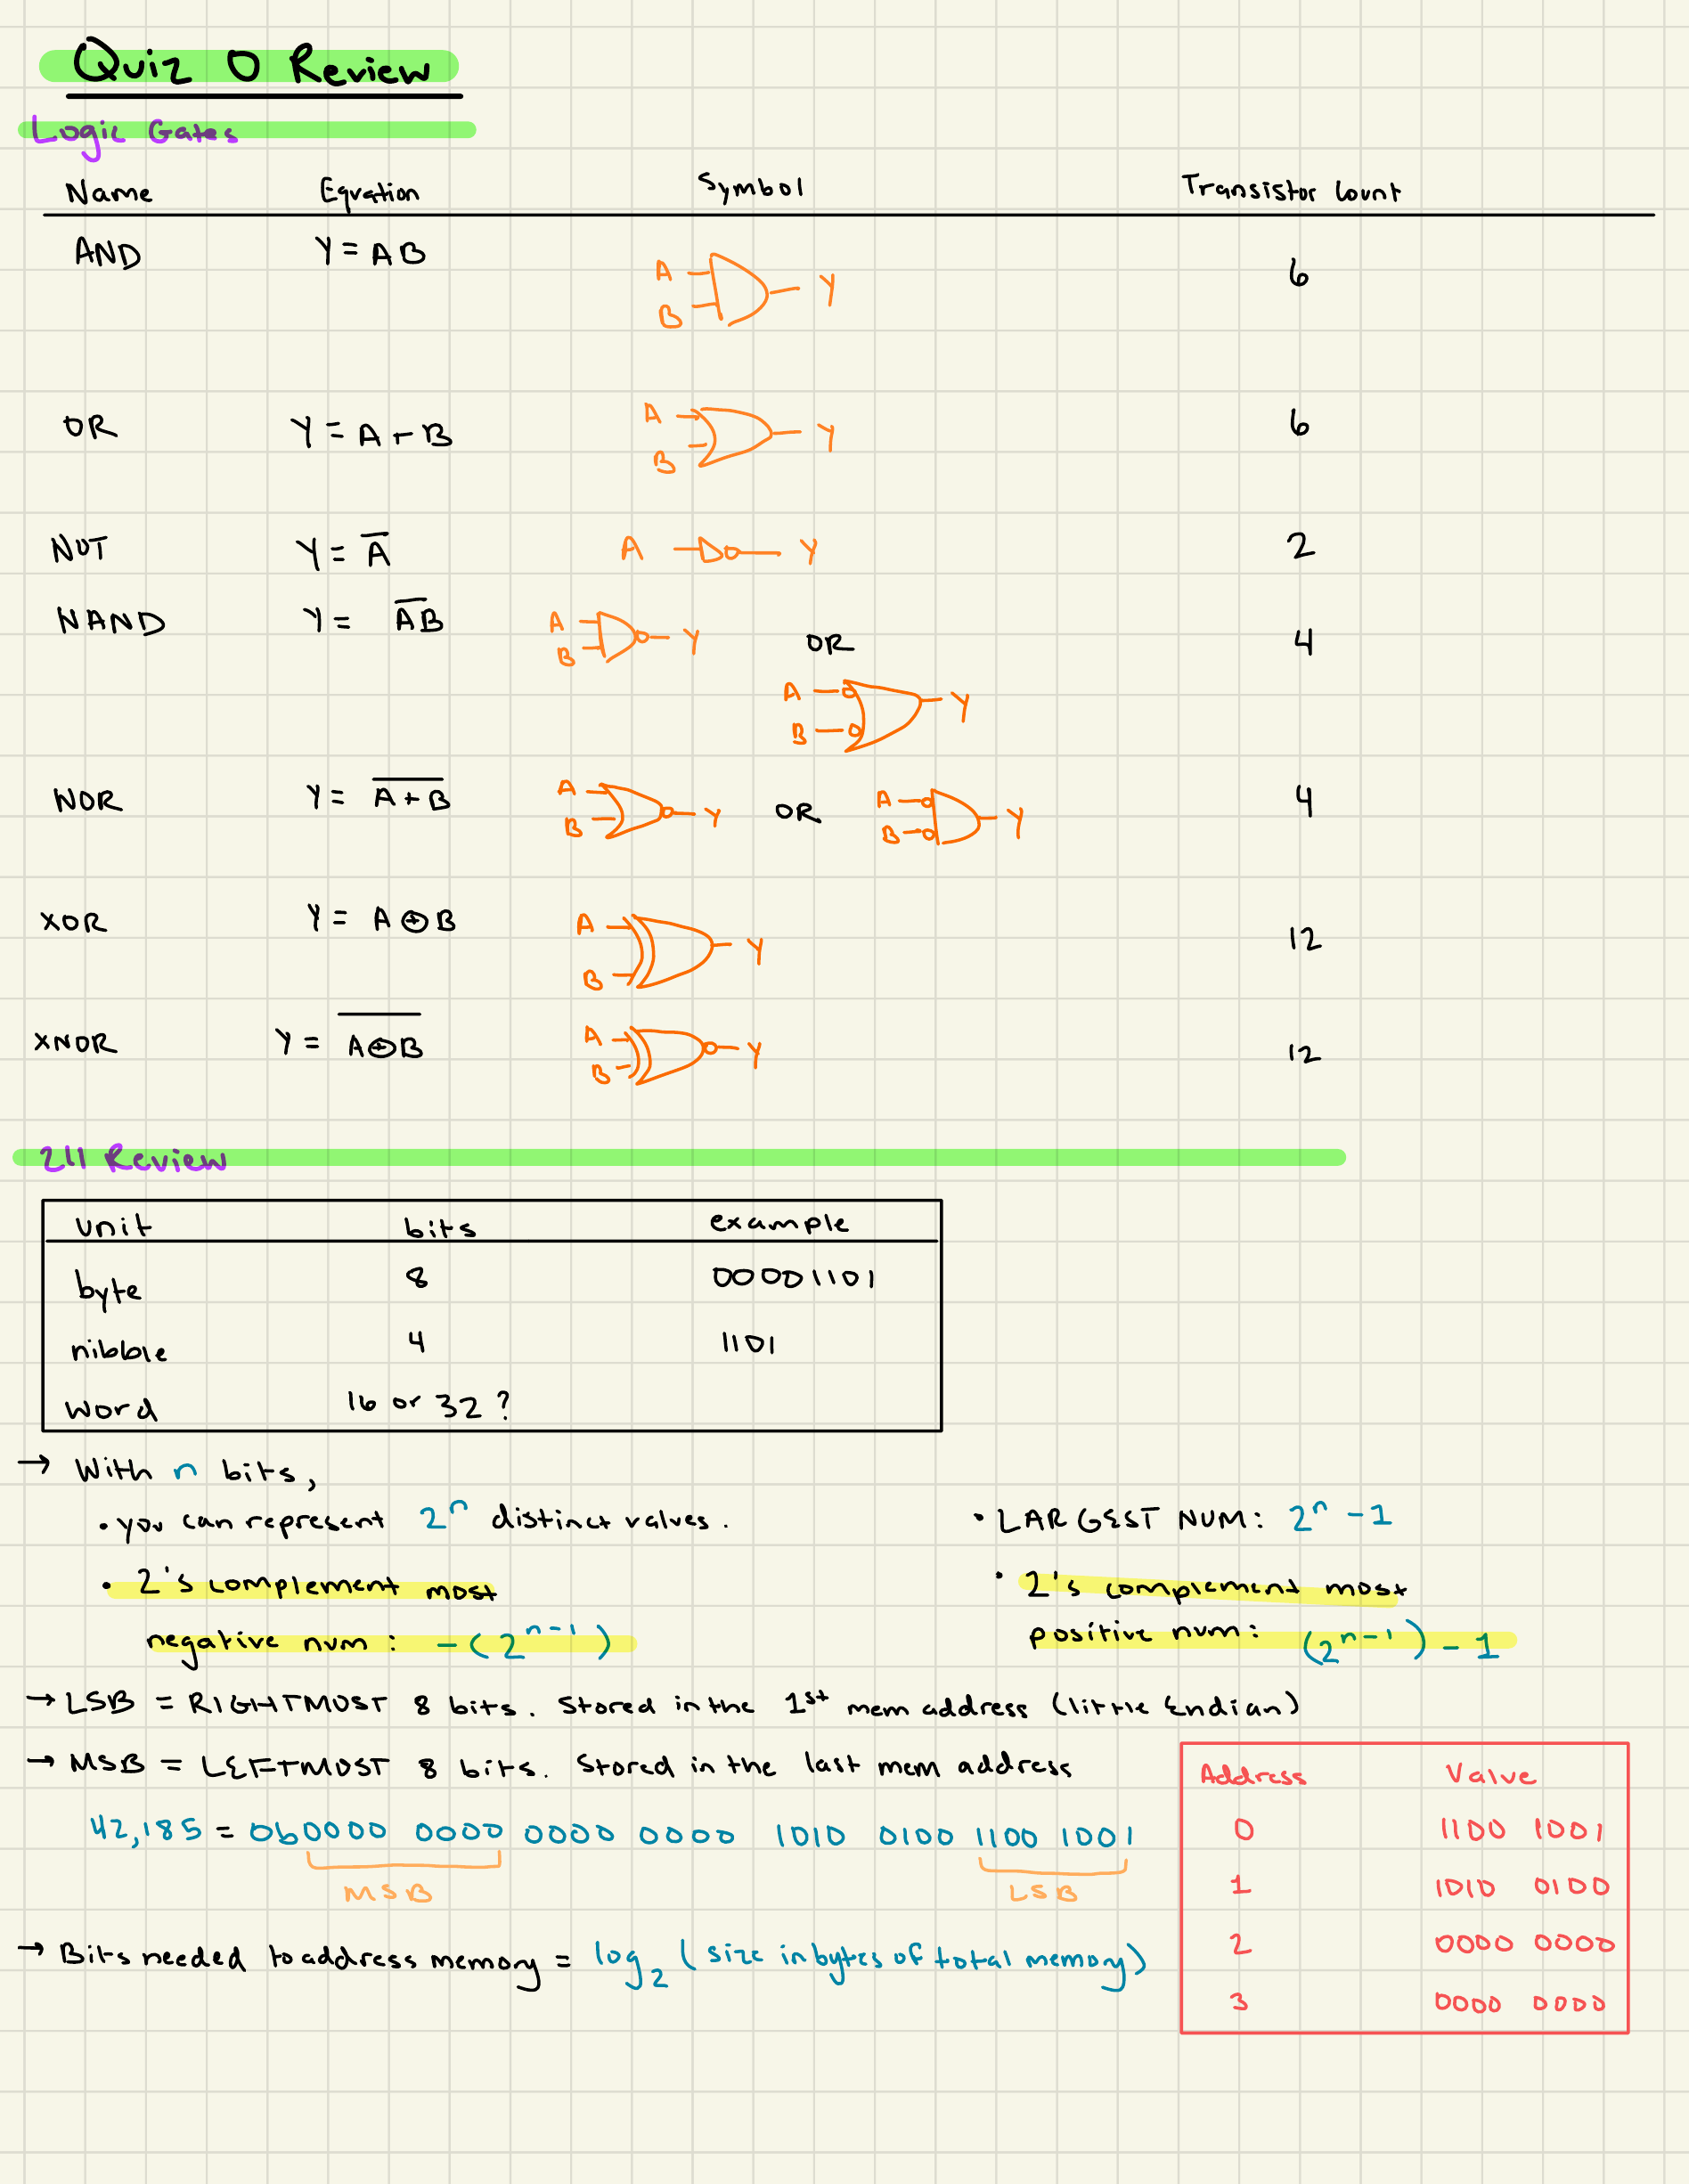 Quiz 0 Review
Logic Gates
Name Equation Symbol Transistor Count
AND Y = AB A B Y 6
OR Y = A + B A B Y 6
NOT Y = A̅ A Y 2
NAND Y = A̅B̅ A B Y OR A B Y 4
NOR Y = \overline{A + B} A B Y OR A B Y 4
XOR Y = A ⊕ B A B Y 12
XNOR Y = \overline{A ⊕ B} A B Y 12
211 Review
unit bits example
byte 8 00001101
nibble 4 1101
word 16 or 32 ?
→ With n bits,
• you can represent 2ⁿ distinct values.
• LARGEST NUM: 2ⁿ - 1
• 2's complement most
negative num: -(2ⁿ⁻¹)
• 2's complement most
positive num: (2ⁿ⁻¹) - 1
→ LSB = RIGHTMOST 8 bits. Stored in the 1st mem address (little Endian)
→ MSB = LEFTMOST 8 bits. Stored in the last mem address
42,185 = 0b0000 0000 0000 0000 1010 0100 1100 1001
MSB LSB
Address Value
0 1100 1001
1 1010 0100
2 0000 0000
3 0000 0000
→ Bits needed to address memory = log₂ (size in bytes of total memory)